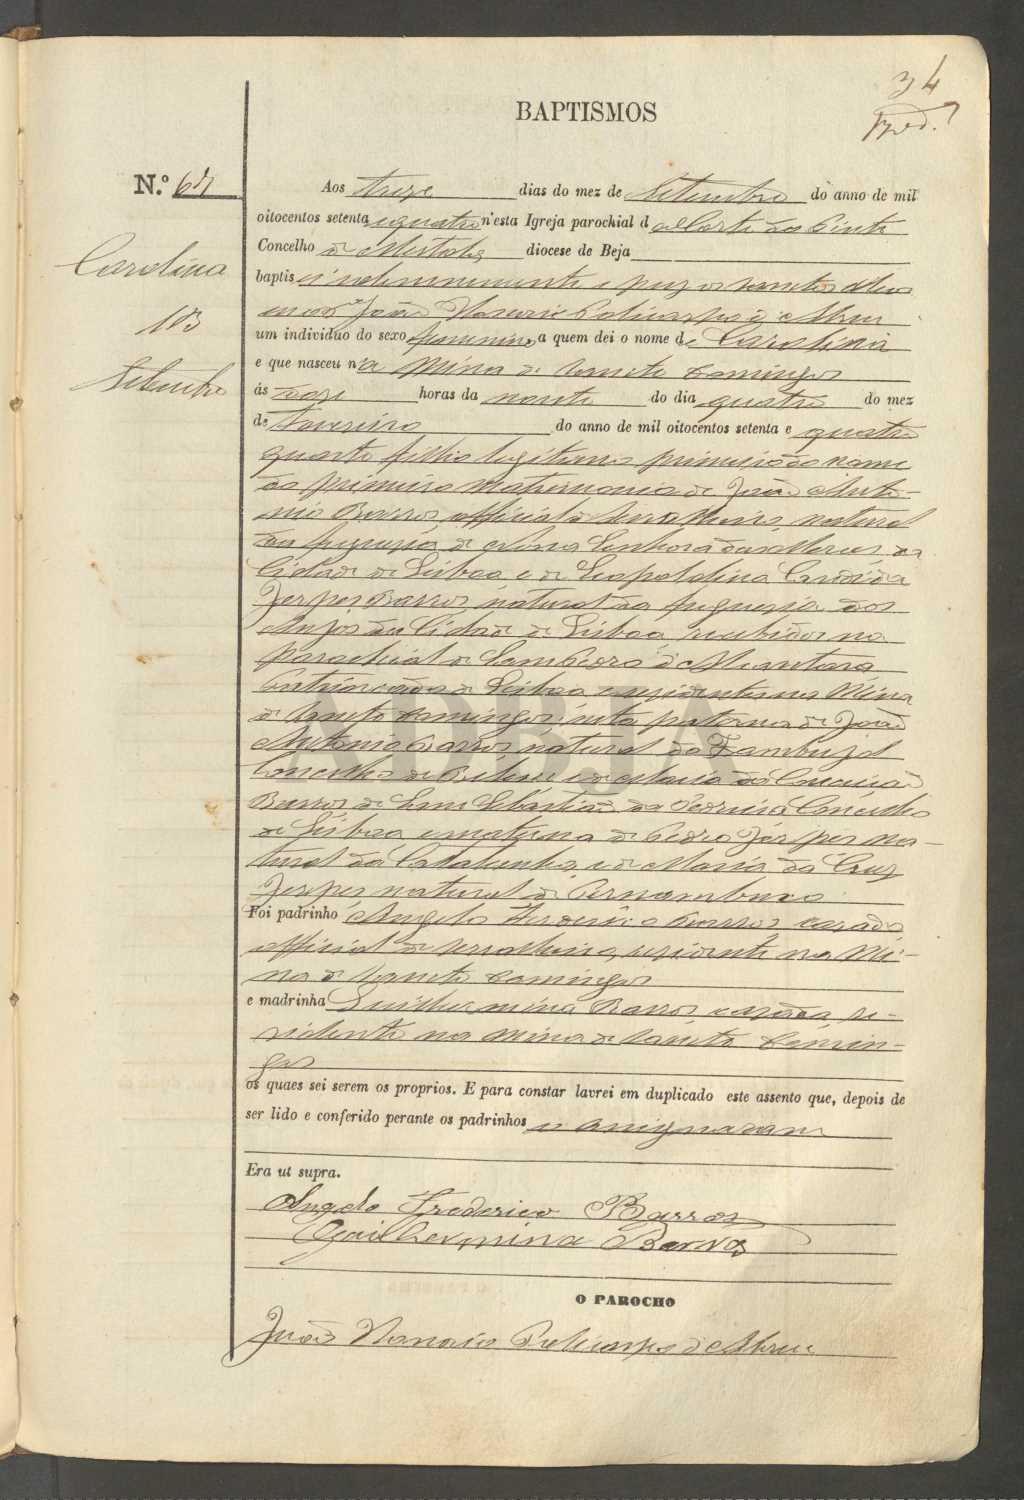 34
BAPTISMOS
N.º 67
Carolina
13
Setembro
Aos treze dias do mez de Setembro do anno de mil
oitocentos setenta e quatro n'esta Igreja parochial d a Corte do Pinto
Concelho de Mertola diocese de Beja
baptis ei solemnemente e puz os sanctos oleos
João Nazario Policarpo d'Abreu
um individuo do sexo feminino a quem dei o nome de Carolina
e que nasceu n a Mina de Santo Domingos
ás doze horas da noute do dia quatro do mez
de Fevereiro do anno de mil oitocentos setenta e quatro
quarto filho legitimo primeiro do nome
do primeiro matrimonio de João Anto-
nio Barros official de Serralheiro natural
da freguesia de Nossa Senhora das Merces da
Cidade de Lisboa e de Leopoldina Candida
Jesper Barros, natural da freguesia dos
Anjos da Cidade de Lisboa recebidos na
parochial de Sam Pedro de Alcantara
Patriarcado de Lisboa e residentes na Mina
de Santo Domingos, neta paterna de João
Antonio Barros natural do Zambujal
Concelho de e de Maria da Conceição
Barros de Sam Sebastião da Pedreira Concelho
de Lisboa e materna de Pedro Jesper na-
tural da e de Maria da Cruz
Jesper natural de Pernambuco
Foi padrinho Angelo Frederico Barros casado
official de serralheiro, residente na Mi-
na de Santo Domingos
e madrinha Guilhermina Barros casada re-
sidente na Mina de Santo Domin-
gos
os quaes sei serem os proprios. E para constar lavrei em duplicado este assento que, depois de
ser lido e conferido perante os padrinhos o assignaram
Era ut supra.
Angelo Frederico Barros
Guilhermina Barros
O PAROCHO
João Nazario Policarpo d'Abreu